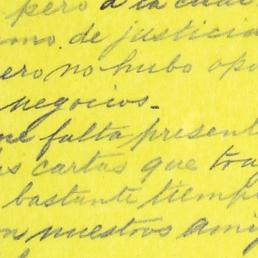 pero a la cual
mo de justicia
ero no hubo opo
negocios.
me falta present
s cartas que tra
bastante tiempo
n nuestros ami